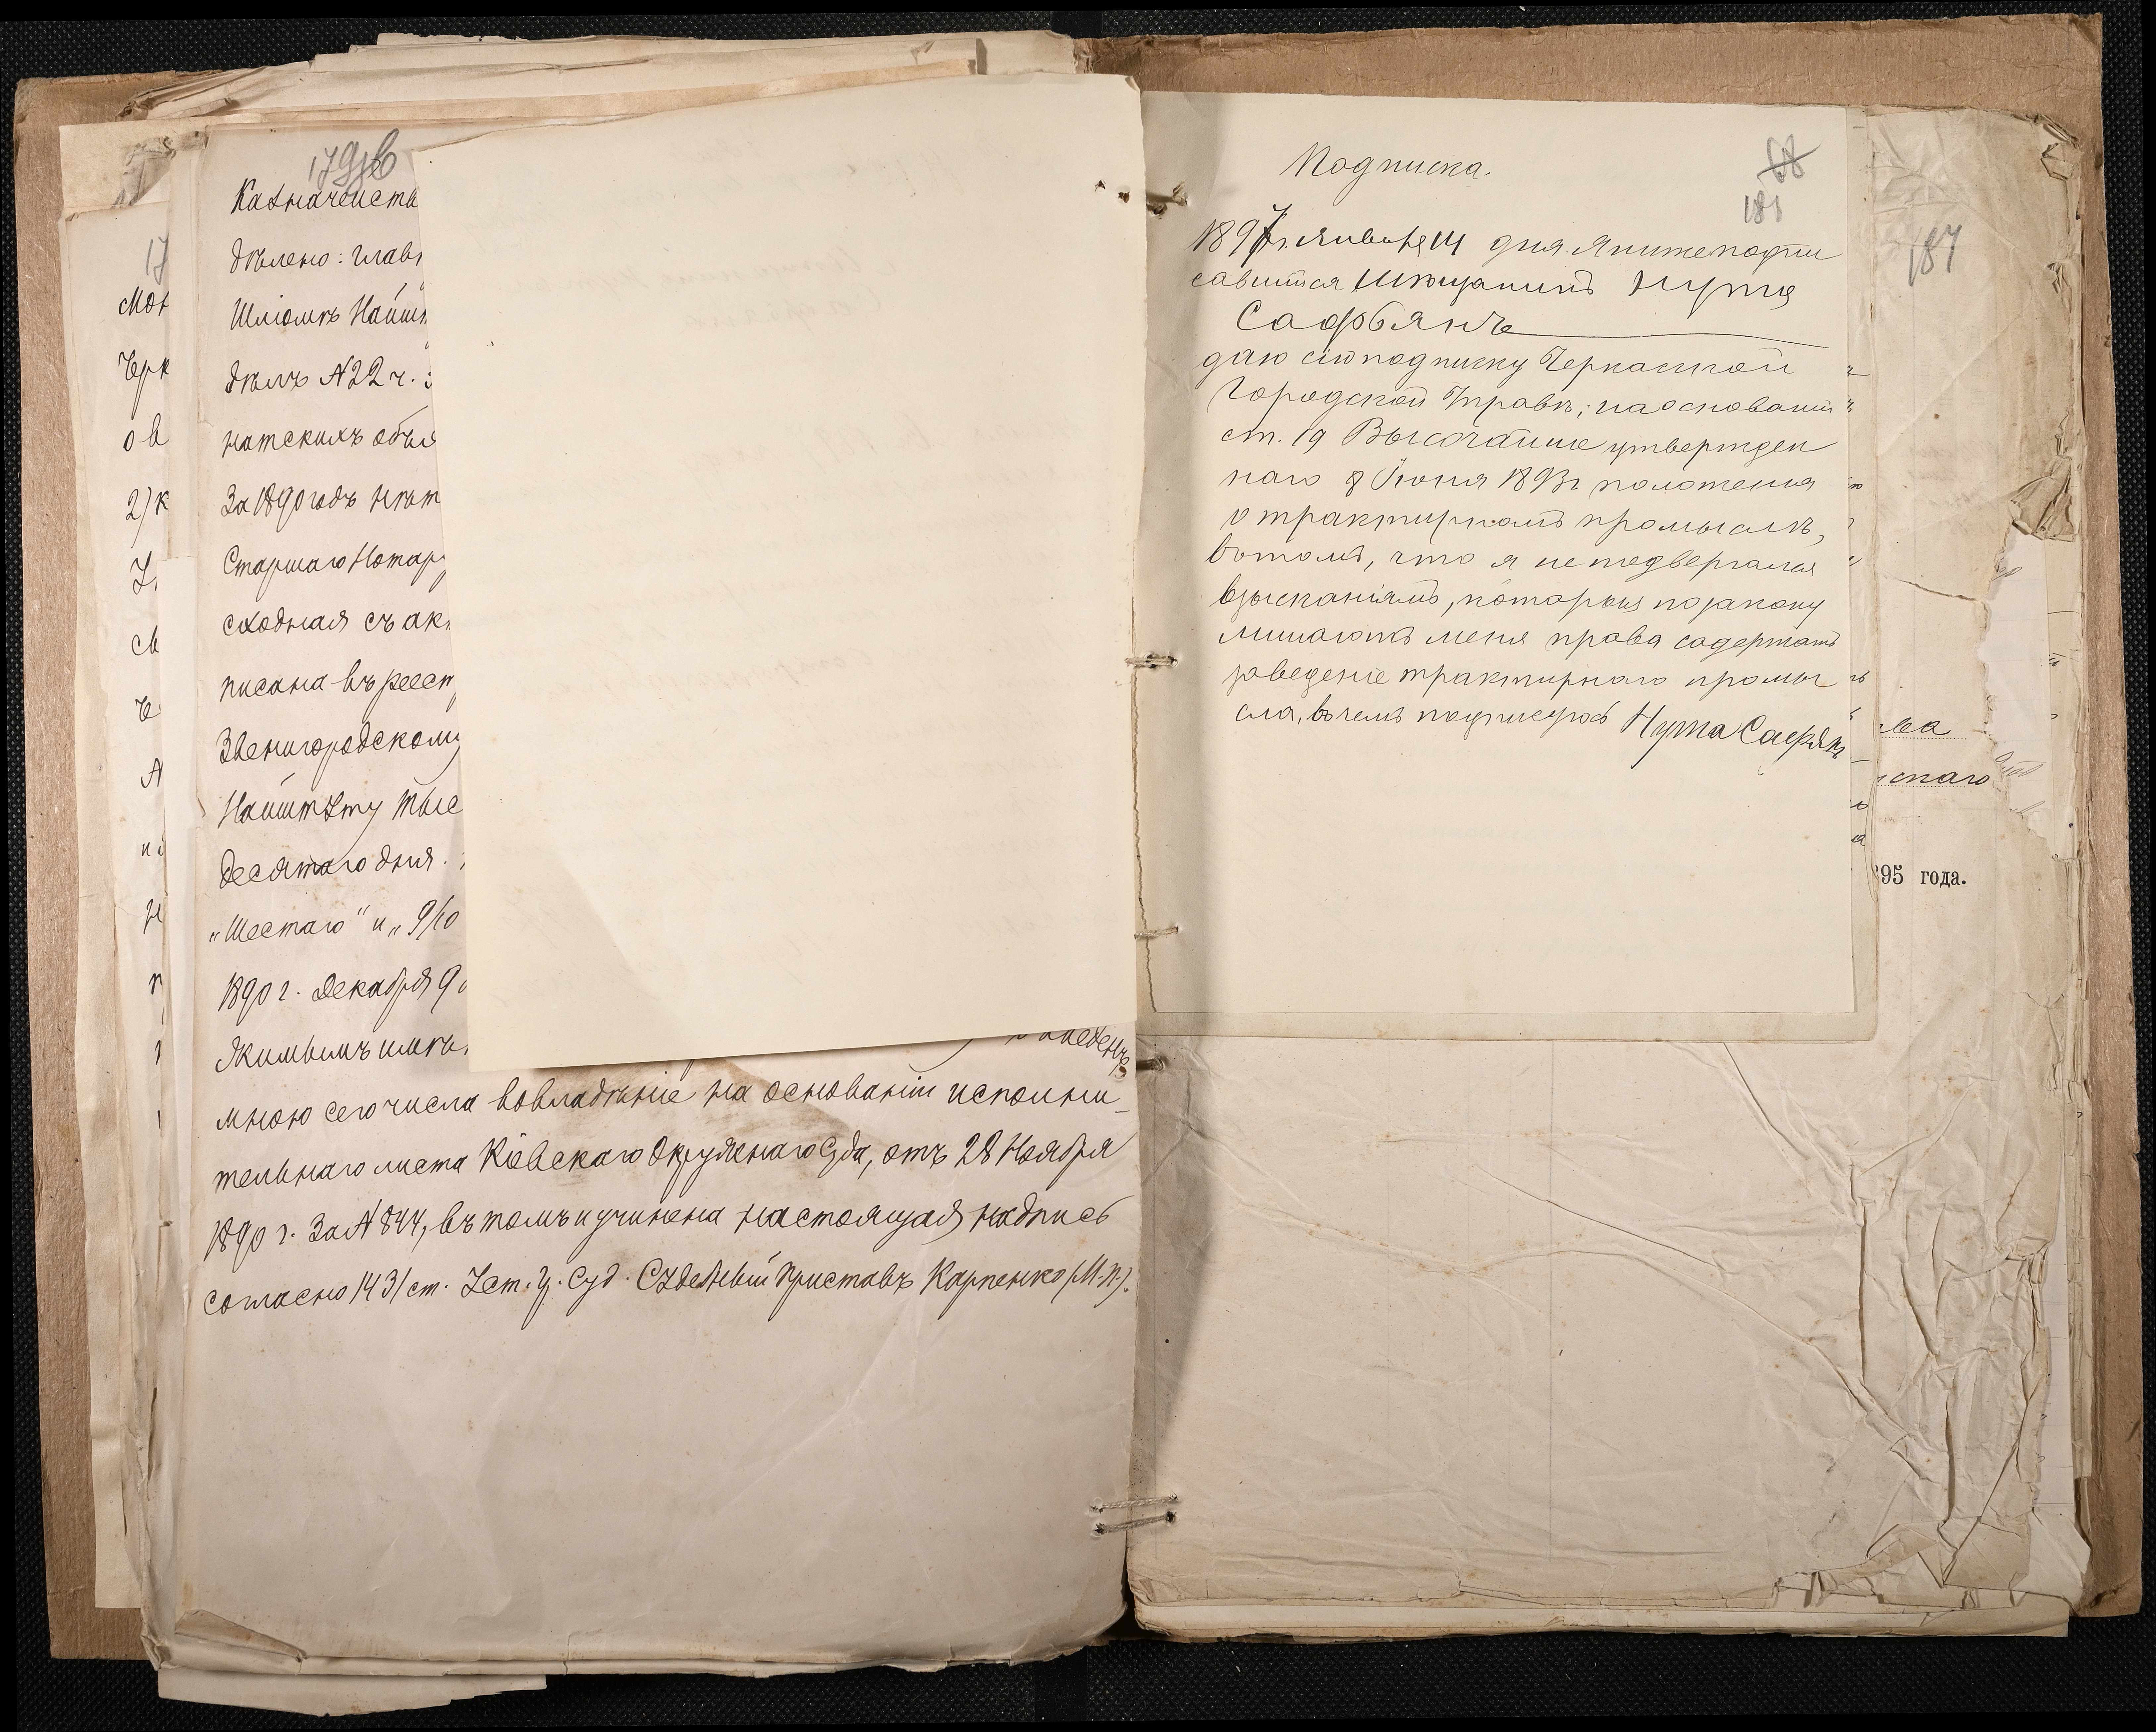 179об
Казначейств
дѣлено: глав
Шліомѣ Найш
дѣлъ №22 ч.
натскихъ объя
За 1890 годъ нѣт
Старшаго Нотар
сходная съ ак
писана въ реест
Звенигородском
Найштету тыс
десятаго дня.
„Шестаго" и „9/10
1890 г. Декабря 9
имѣ
введенъ
мною сего числа во владѣніе на основаніи исполни-
тельнаго листа Кіевскаго Окружнаго Суда, отъ 28 Ноября
1890 г. За №844, въ томъ и учинена настоящая надпись
согласно 1431 ст. Уст. Гр. Суд. Судебный Приставъ Карпенко (М.П.).
17
Мон
Чрк
ов
2) к
св
А
Подписка.
68
181
1897 г. Января 14 дня. Я нижеподпи
савшійся Мѣщанинъ Нута
Сафьянъ
даю сію подписку Черкасской
Городской Управѣ, на основаніи
ст. 19 Высочайше утвержден
наго 8 Іюня 1893 г положенія
о трактирномъ промыслѣ,
въ томъ, что я не подвергался
взысканіямъ, которыя по закону
лишаютъ меня права содержать
заведеніе трактирнаго промы
сла, въ чемъ подписуюсь Нута Сафянъ
187
ва
скаго
95 года.